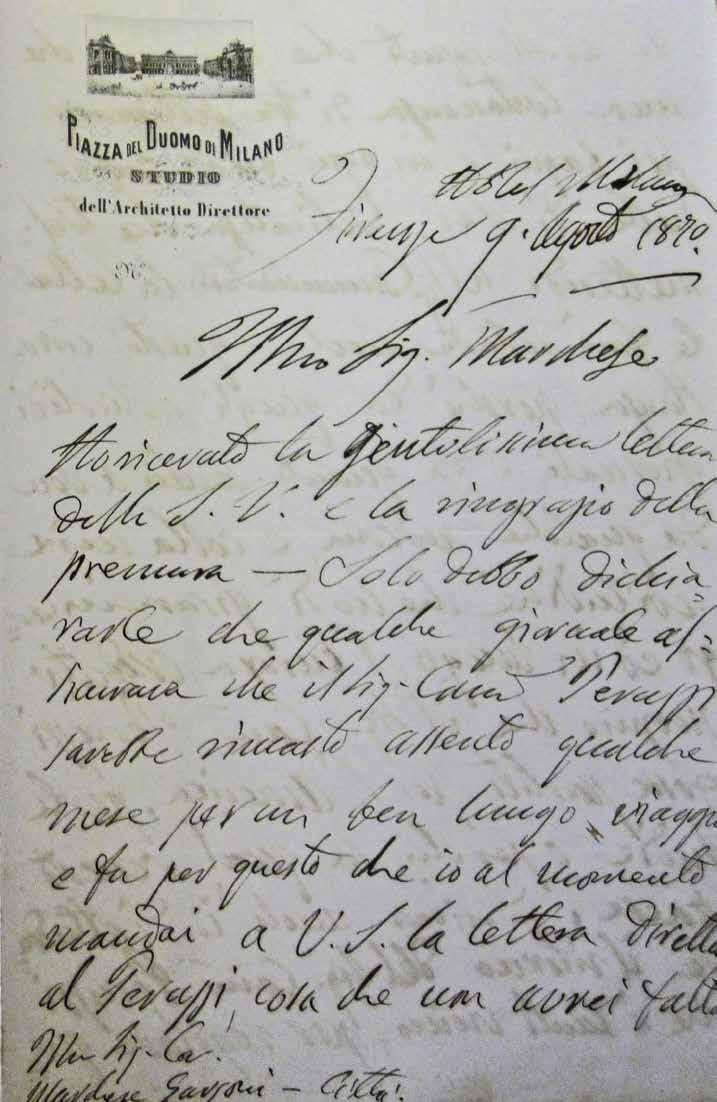 PIAZZA DEL DUOMO DI MILANO
STUDIO
dell'Architetto Direttore
Hôtel Milano
Firenze 9. Agosto 1870.
N.
Illmo Sig. Marchese
Ho ricevuto la gentilissima lettera
della S. V. e la ringrazio della
premura — Solo debbo dichia-
rarle che qualche giornale af-
fermava che il Sig. Peruzzi
sarebbe rimasto assente qualche
mese per un ben lungo viaggio
e fu per questo che io al momento
mandai a V. S. la lettera diretta
al Peruzzi, cosa che non avrei fatto
Sig.
Marchese — Città.